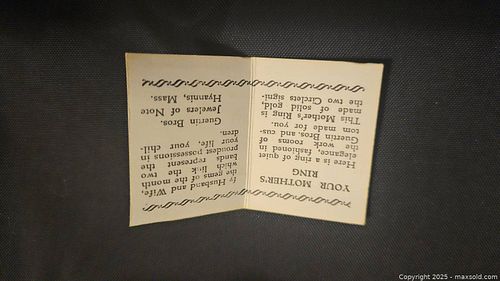 YOUR MOTHER'S
RING
Here is a ring of quiet
elegance, fashioned in
the work rooms of
Guertin Bros. and cus-
tom made for you.
This Mother's Ring is
made of solid gold,
the two Circlets signi-
fy Husband and Wife,
the gems of the month
which link the two
bands represent the
proudest possessions in
your life, your chil-
dren.
Guertin Bros.
Jewelers of Note
Hyannis, Mass.
Copyright 2025 - maxsold.com